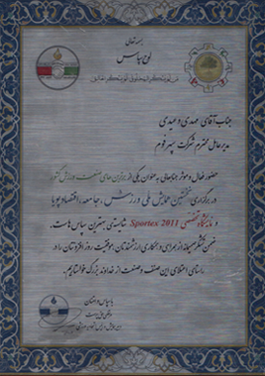 بسمه تعالی
لوح سپاس
جناب آقای مهدی وحیدی
مدیرعامل محترم شرکت سپهر فوم
حضور فعال و موثر جنابعالی به عنوان یکی از برترین های صنعت ورزش کشور
در برگزاری نخستین همایش ملی ورزش، جامعه، اقتصاد پویا
و نمایشگاه تخصصی Sportex 2011 شایسته‌ی بهترین سپاس هاست.
ضمن تشکر صمیمانه از همراهی و همکاری ارزشمندتان، موفقیت روزافزونتان را
در راستای اعتلای این صنف و صنعت از خداوند بزرگ خواستاریم.
با سپاس و امتنان